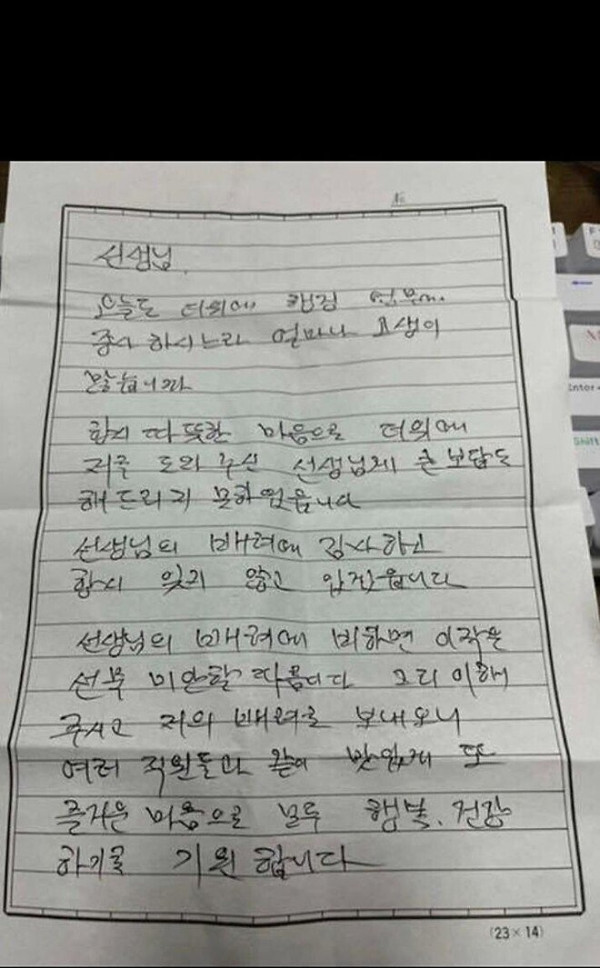 No
선생님
오늘도 더위에 행정 업무에
종사 하시느라 얼마나 고생이
많습니까
항시 따뜻한 마음으로 더위에
저를 도와 주신 선생님께 큰 보답도
해 드리지 못하였읍니다
선생님의 배려에 감사하고
항시 잊지 않고 있겠읍니다
선생님의 배려에 비하면 이 작은
선물 미안할 따름이다 그리 이해
주시고 저의 배려를 보내오니
여러 직원들과 같이 맛있게 또
즐거운 마음으로 모두 행복, 건강
하기를 기원 합니다
(23×14)
Enter
Shift